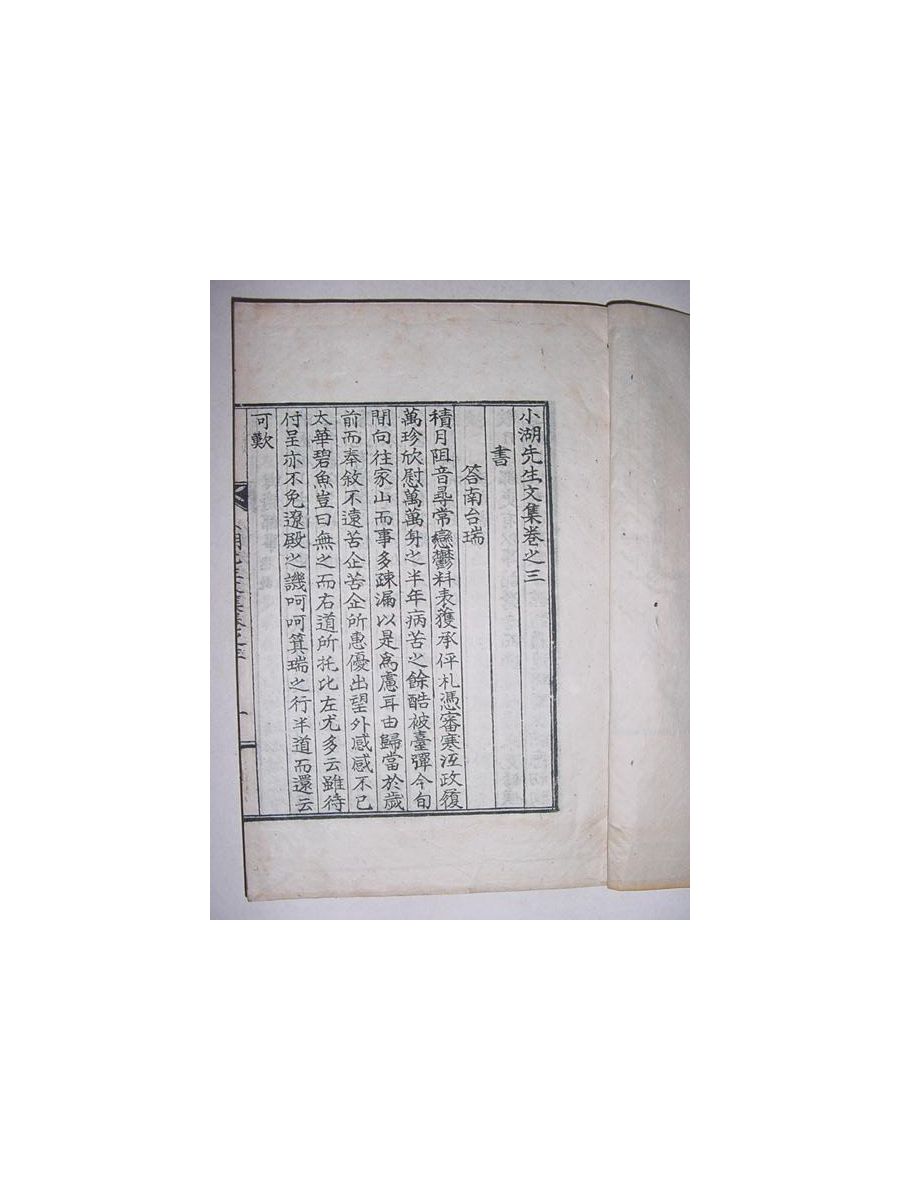 小湖先生文集卷之三
書
答南台瑞
積月阻音尋常戀鬱料表獲承伻札憑審寒沍政履
萬珍欣慰萬萬身之半年病苦之餘酷被臺彈今旬
間向往家山而事多疎漏以是爲慮耳由歸當於歲
前而奉敘不遠苦企苦企所惠優出望外感感不已
太華碧魚豈曰無之而右道所托比左尤多云雖待
付呈亦不免遼殿之譏呵呵箕瑞之行半道而還云
可歎
湖先生文集卷之三